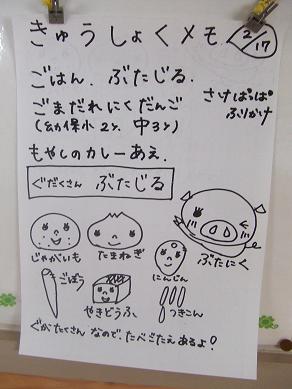 きゅうしょくメモ 2/17
ごはん. ぶたじる.
ごまだれにくだんご
(幼保小2ケ. 中3ケ)
さけぱっぱ
ふりかけ
もやしのカレーあえ.
ぐだくさん ぶたじる
じゃがいも たまねぎ にんじん ぶたにく
ごぼう やきどうふ つきこん
ぐがたくさん なので、たべごたえあるよ!